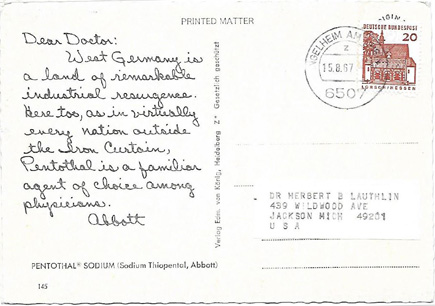 PRINTED MATTER
Dear Doctor:
West Germany is
a land of remarkable
industrial resurgence.
Here too, as in virtually
every nation outside
the Iron Curtain,
Pentothal is a familiar
agent of choice among
physicians.
Abbott
PENTOTHAL® SODIUM (Sodium Thiopental, Abbott)
145
Verlag Edm. von König, Heidelberg Z* Gesetzlich geschützt
INGELHEIM AM
z
15.8.67
6507
DEUTSCHE BUNDESPOST
20
LORSCH/HESSEN
DR HERBERT B LAUTHLIN
439 WILDWOOD AVE
JACKSON MICH 49201
U S A